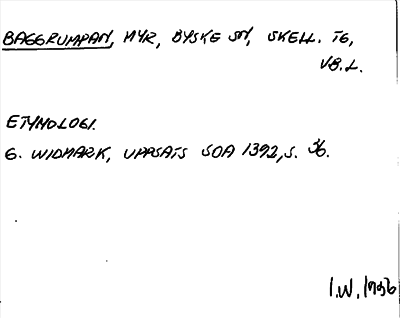 BAGGRUMPAN, MYR, BYSKE SN, SKELL. TG,
VB.L.
ETYMOLOGI.
G. WIDMARK, UPPSATS SOA 1392, S. 36.
I.W. 1956